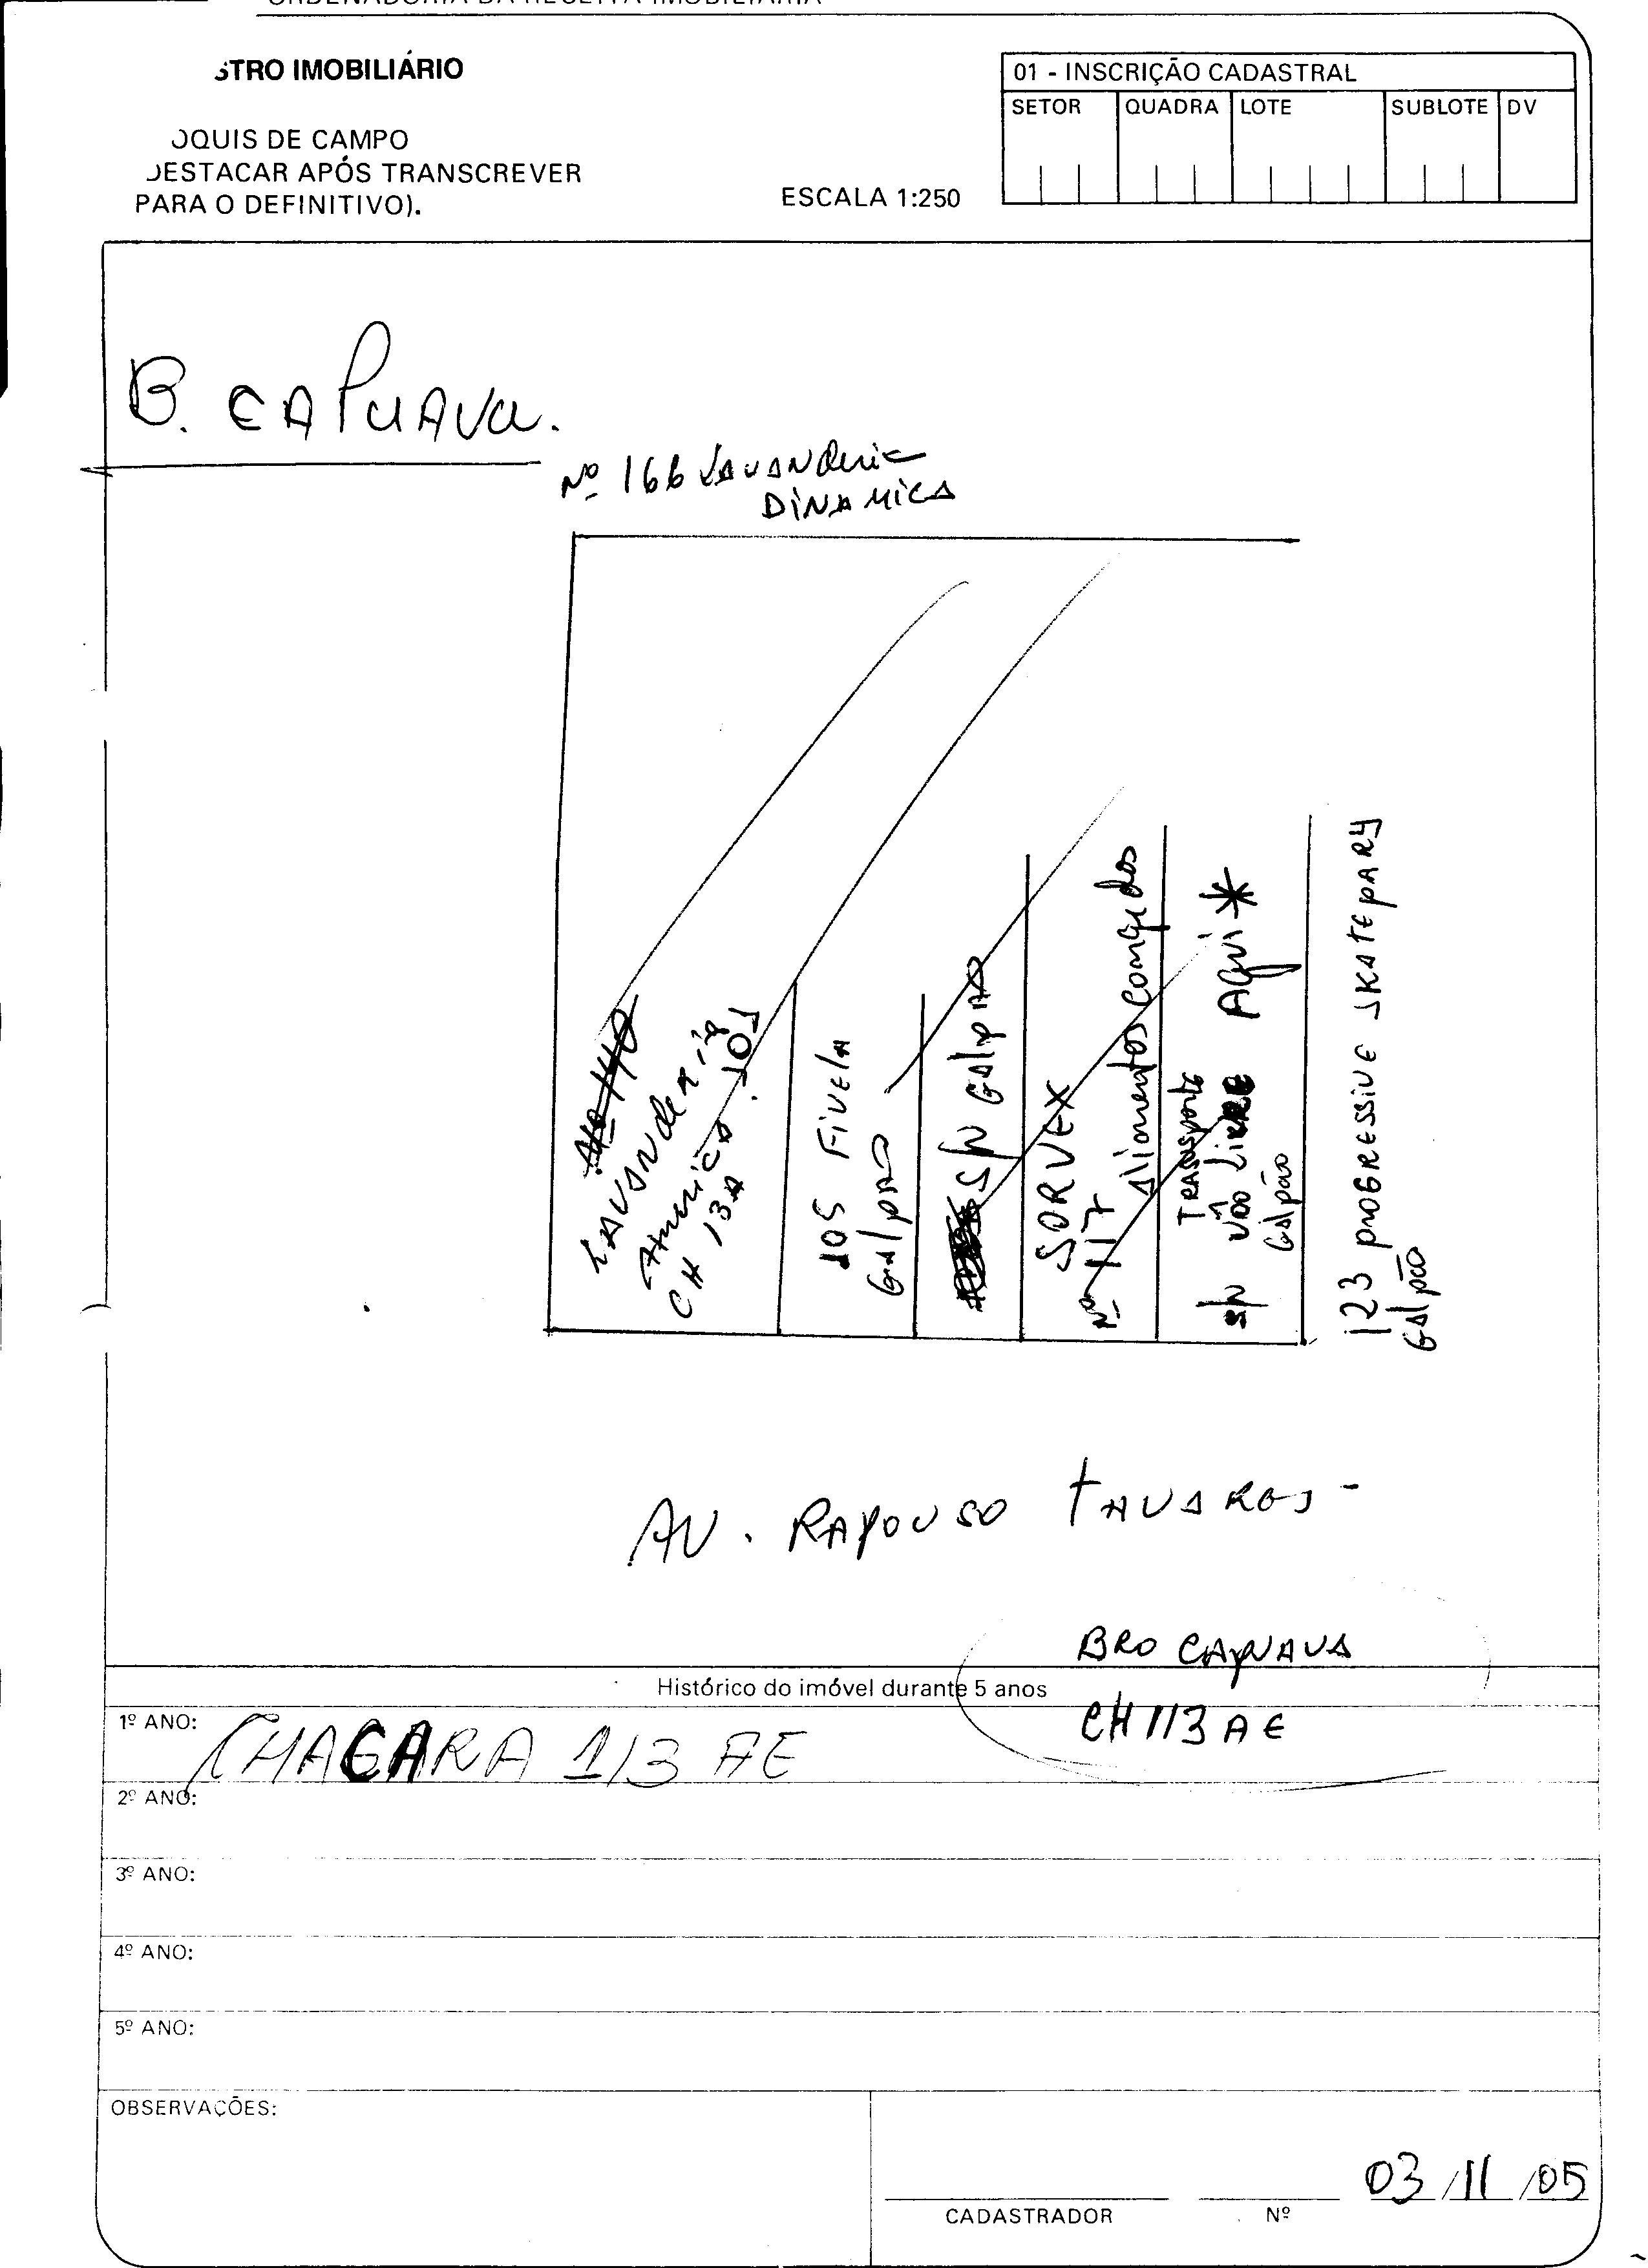 STRO IMOBILIÁRIO
OQUIS DE CAMPO
DESTACAR APÓS TRANSCREVER
PARA O DEFINITIVO).
ESCALA 1:250
01 - INSCRIÇÃO CADASTRAL
SETOR QUADRA LOTE SUBLOTE DV
B. CAPUAVA.
Nº 166 LAVANDERIA
DINAMICA
LAVANDERIA
CH 13A
101
105 FIVELA
GALPÃO
S/N GALPÃO
SORVEX
Nº 117 Alimentos
TRANSPORTE
S/N VÃO LIVRE AQUI *
GALPÃO
123 PROGRESSIVE SKATEPARY
GALPÃO
AV. RAPOUSO TAVARES -
BRO CAPUAVA
CH 113 AE
Histórico do imóvel durante 5 anos
1º ANO: CHACARA 113 AE
2º ANO:
3º ANO:
4º ANO:
5º ANO:
OBSERVAÇÕES:
03/11/05
CADASTRADOR Nº